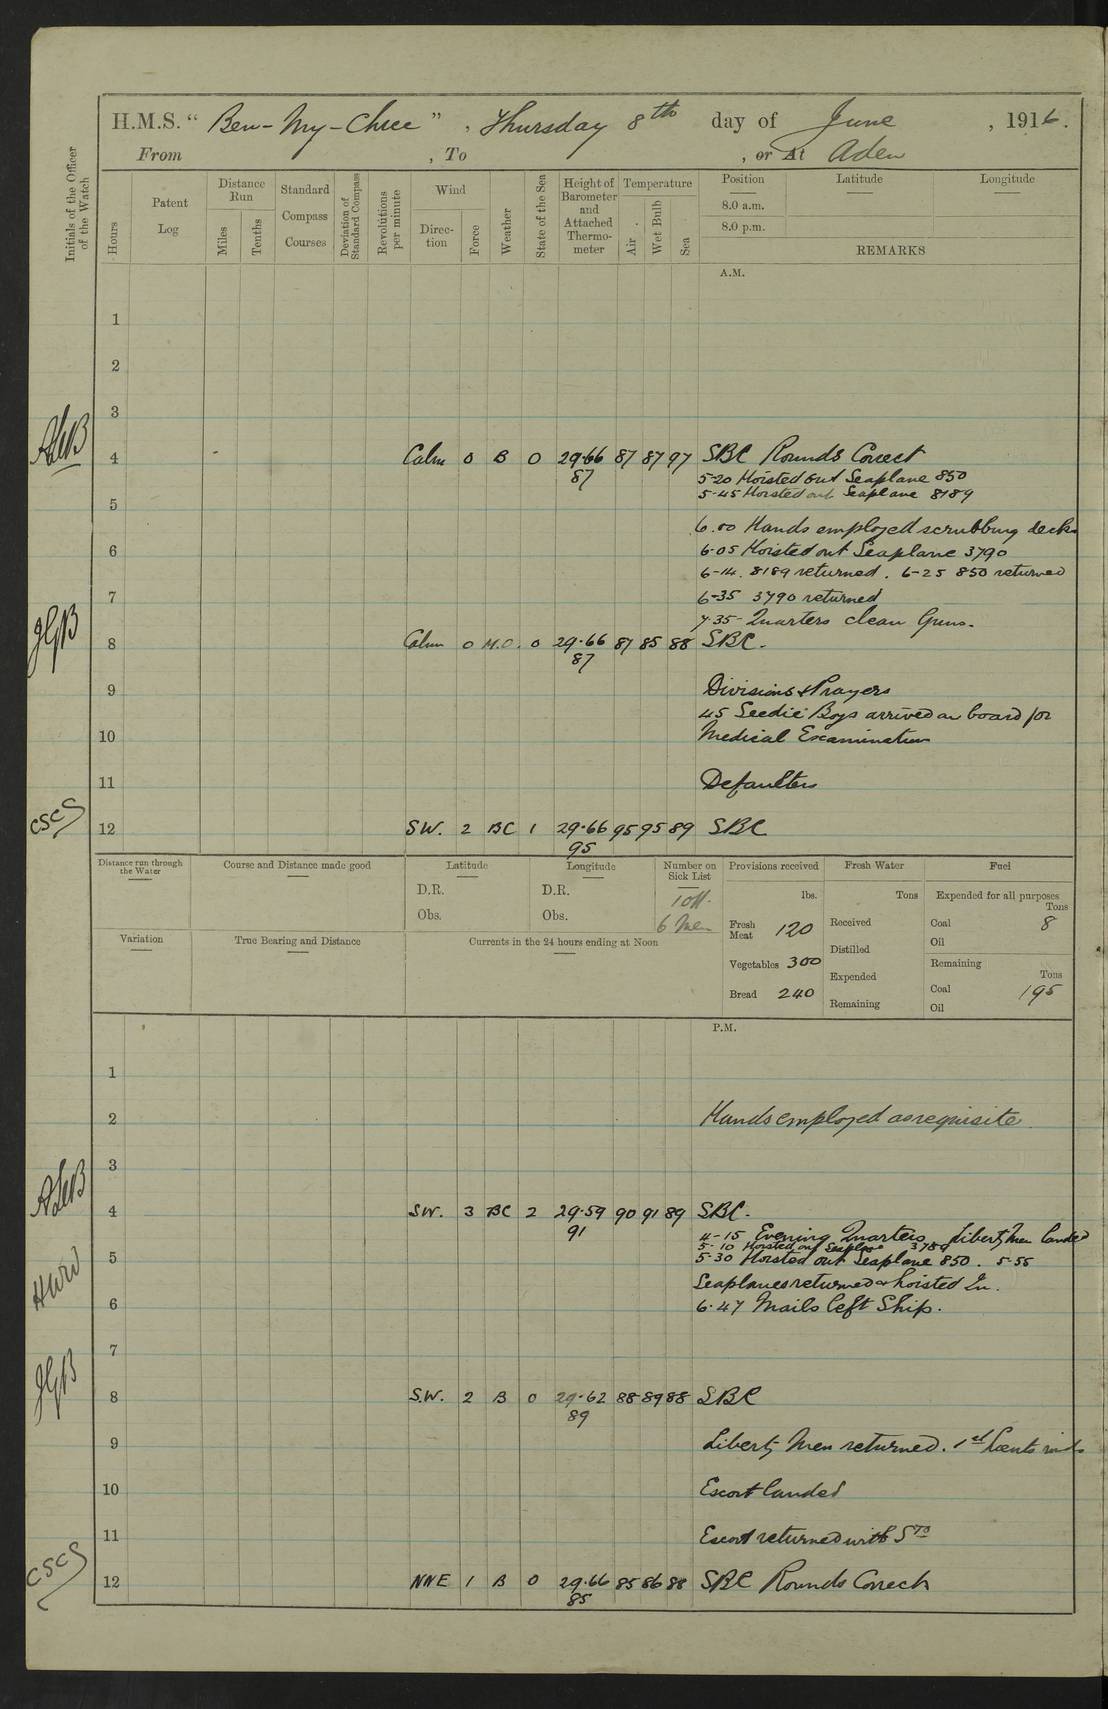 H.M.S. “ Ben-My-Chree ” , Thursday 8th day of June , 1916.
From , To , or At Aden
Initials of the Officer of the Watch
Hours
Patent Log
Distance Run
Miles
Tenths
Standard Compass Courses
Deviation of Standard Compass
Revolutions per minute
Wind
Direction
Force
Weather
State of the Sea
Height of Barometer and Attached Thermometer
Temperature
Air
Wet Bulb
Sea
Position Latitude Longitude
8.0 a.m.
8.0 p.m.
REMARKS
A.M.
1
2
3
4 Calm 0 B 0 29.66 87 87 97 SBC Rounds Correct
87
5-20 Hoisted out Seaplane 850
5-45 Hoisted out Seaplane 8189
5
6.00 Hands employed scrubbing decks
6 6-05 Hoisted out Seaplane 3790
6-14. 8189 returned. 6-25 850 returned
7 6-35 3790 returned
7.35- Quarters clean Guns.
JGB 8 Calm 0 M.O. 0 29.66 87 85 88 SBC.
87
9 Divisions & Prayers
45 Seedie Boys arrived on board for
10 Medical Examination
11 Defaulters
CSCS 12 SW. 2 BC 1 29.66 95 95 89 SBC
95
Distance run through the Water
Course and Distance made good
Latitude
D.R.
Obs.
Longitude
D.R.
Obs.
Number on Sick List
1 Off.
6 Men
Provisions received
lbs.
Fresh Meat 120
Vegetables 300
Bread 240
Fresh Water
Tons
Received
Distilled
Expended
Remaining
Fuel
Expended for all purposes
Tons
Coal 8
Oil
Remaining
Tons
Coal 195
Oil
Variation
True Bearing and Distance
Currents in the 24 hours ending at Noon
P.M.
1
2 Hands employed as requisite
3
4 SW. 3 BC 2 29.59 90 91 89 SBC.
91
4-15 Evening Quarters Liberty Men landed
5-10 Hoisted out Seaplane
5 5-30 Hoisted out Seaplane 850. 5-55
Seaplanes returned & hoisted In.
6 6.47 Mails left Ship.
7
JGB 8 S.W. 2 B 0 29.62 88 89 88 SBC
89
9 Liberty Men returned. 1st
10 Escort landed
11 Escort returned with Sto
CSCS 12 NNE 1 B 0 29.66 85 86 88 SBC Rounds Correct
85